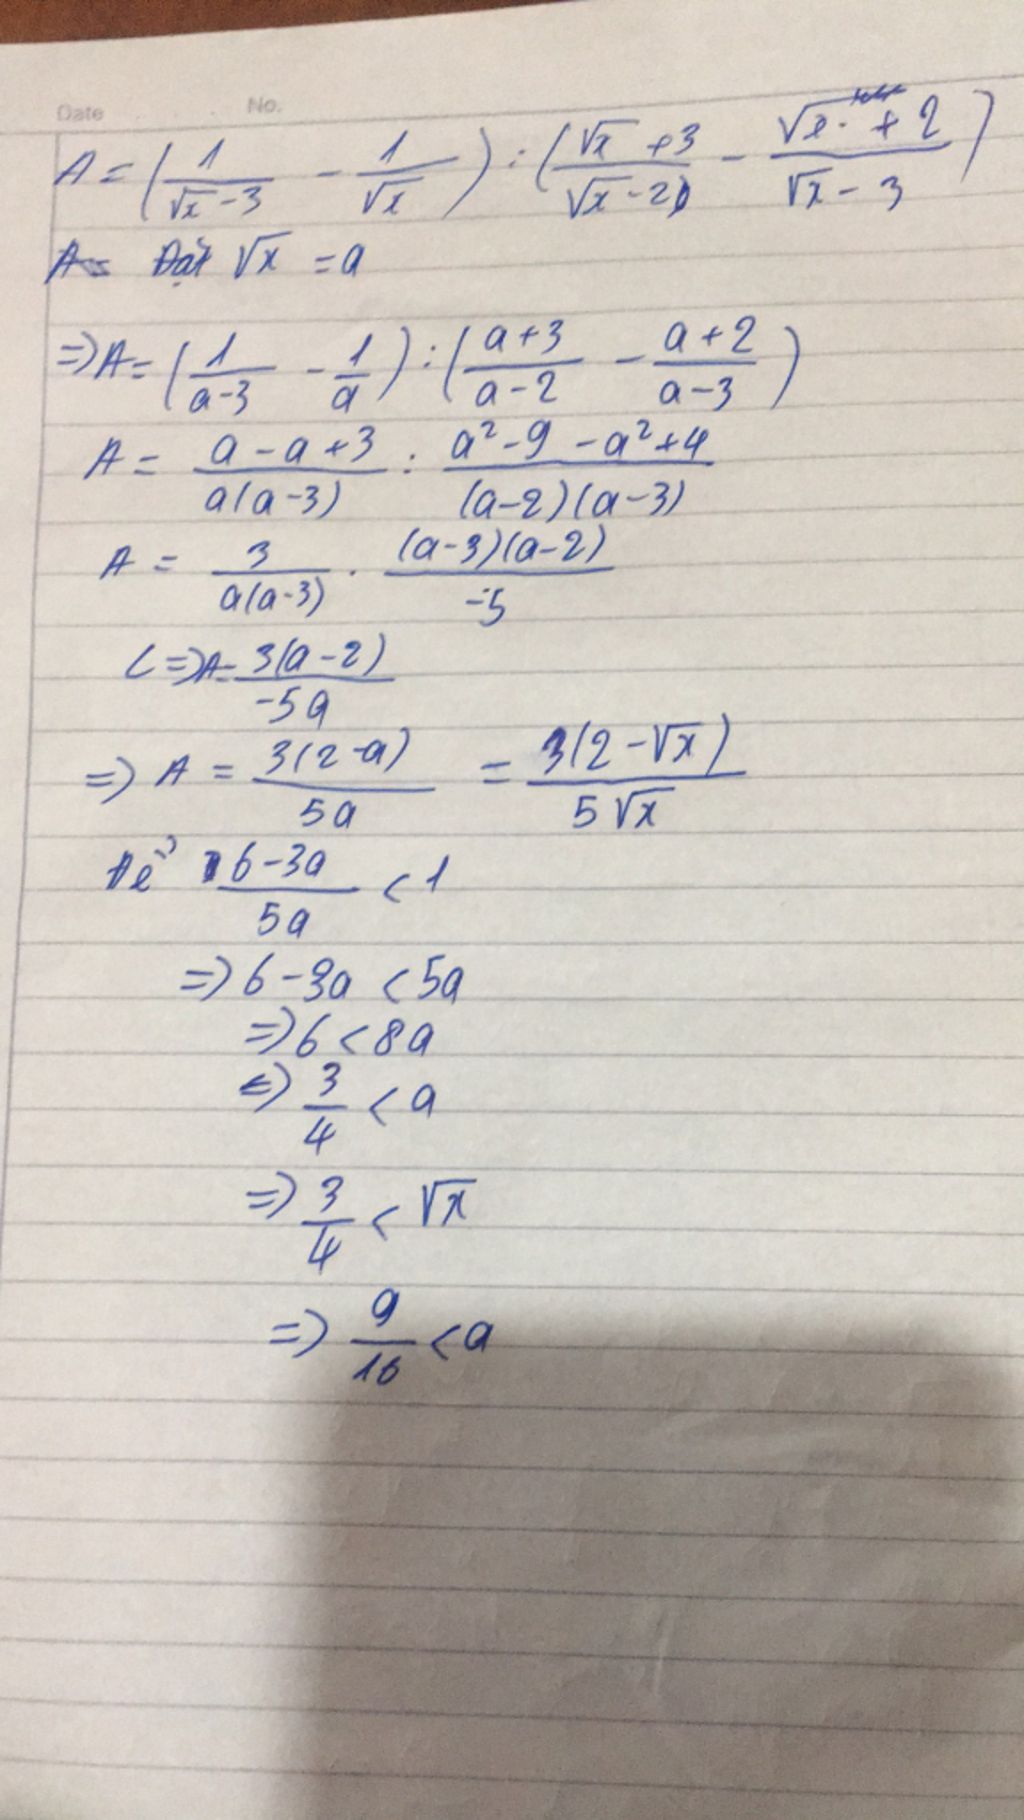 Date No.
A = ( 1/(√x - 3) - 1/√x ) : ( (√x + 3)/(√x - 2) - (√x + 2)/(√x - 3) )
Đặt √x = a
=> A = ( 1/(a-3) - 1/a ) : ( (a+3)/(a-2) - (a+2)/(a-3) )
A = (a - a + 3)/(a(a-3)) : (a² - 9 - a² + 4)/((a-2)(a-3))
A = 3/(a(a-3)) . ((a-3)(a-2))/(-5)
<=> A = 3(a-2)/(-5a)
=> A = 3(2-a)/(5a) = 3(2-√x)/(5√x)
Để (6-3a)/(5a) < 1
=> 6 - 3a < 5a
=> 6 < 8a
<=> 3/4 < a
=> 3/4 < √x
=> 9/16 < a